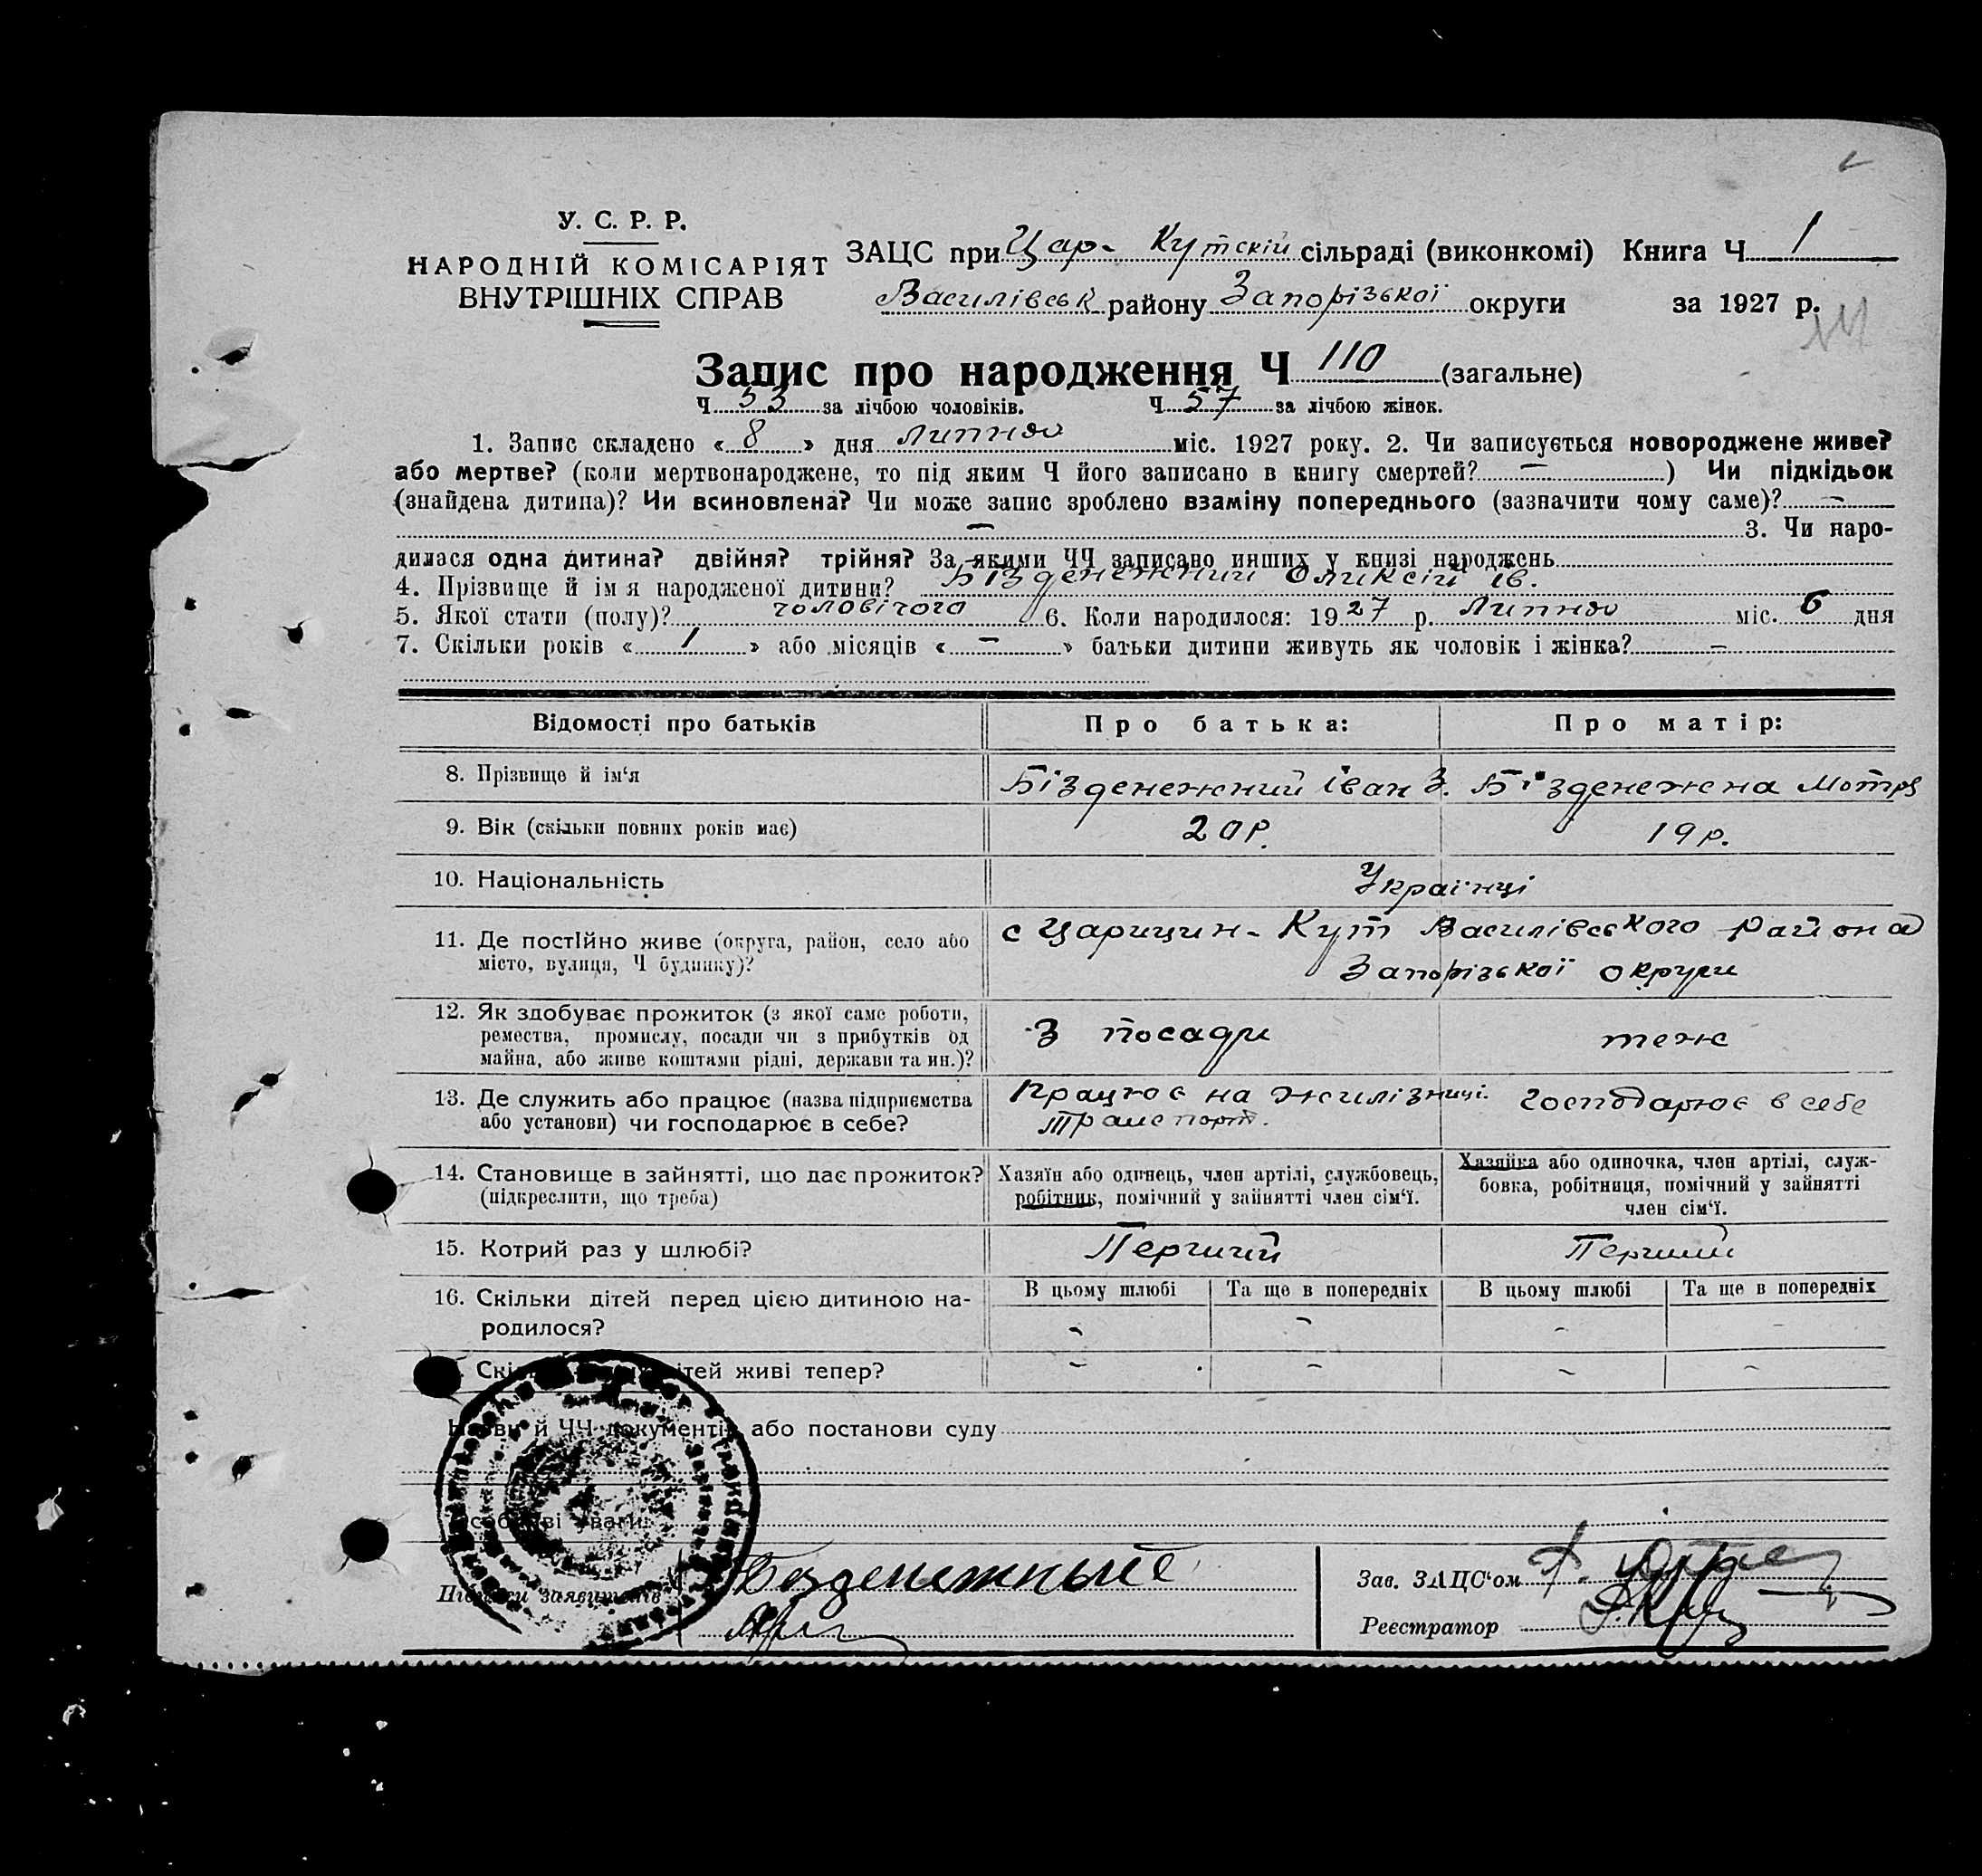 У. С. Р. Р.
НАРОДНІЙ КОМІСАРІЯТ
ВНУТРІШНІХ СПРАВ
ЗАЦС при Цар- Кутскій сільраді (виконкомі) Книга Ч 1
Василівськ району Запорізької округи за 1927 р.
Запис про народження Ч 110 (загальне)
Ч 53 за лічбою чоловіків. Ч 57 за лічбою жінок.
1. Запис складено « 8 » дня Липня міс. 1927 року. 2. Чи записується новороджене живе?
або мертве? (коли мертвонароджене, то під яким Ч його записано в книгу смертей? — ) Чи підкідьок
(знайдена дитина)? Чи всиновлена? Чи може запис зроблено взаміну попереднього (зазначити чому саме)? —
— 3. Чи наро-
дилася одна дитина? двійня? трійня? За якими ЧЧ записано инших у книзі народжень
4. Прізвище й ім я народженої дитини? Бізденежний Оликсій Ів.
5. Якої стати (полу)? чоловічого 6. Коли народилося: 1927 р. Липня міс. 6 дня
7. Скільки років « 1 » або місяців « — » батьки дитини живуть як чоловік і жінка? —
Відомості про батьків Про батька: Про матір:
8. Прізвище й ім‘я Бізденежний Іван З. Бізденежна Мотря
9. Вік (скільки повних років має) 20р. 19р.
10. Національність Українці
11. Де постійно живе (округа, район, село або с Царицин-Кут Василівського района
місто, вулиця, Ч будинку)? Запорізької округи
12. Як здобуває прожиток (з якої саме роботи,
ремества, промислу, посади чи з прибутків од З посади теж
майна, або живе коштами рідні, держави та ин.)?
13. Де служить або працює (назва підприємства Працює на жилізниці. Господарює в себе
або установи) чи господарює в себе? Транспорт.
14. Становище в зайнятті, що дає прожиток? Хазяїн або одинець, член артілі, службовець, Хазяйка або одиночка, член артілі, служ-
(підкреслити, що треба) робітник, помічний у зайнятті член сім‘ї. бовка, робітниця, помічний у зайнятті
член сім‘ї.
15. Котрий раз у шлюбі? Перший Перший
16. Скільки дітей перед цією дитиною на- В цьому шлюбі Та ще в попередніх В цьому шлюбі Та ще в попередніх
родилося? - - - -
дітей живі тепер? - - - -
Назви й ЧЧ документів або постанови суду
Особливі уваги:
Підписи заявителів Безденежный
Зав. ЗАЦС‘ом
Реєстратор